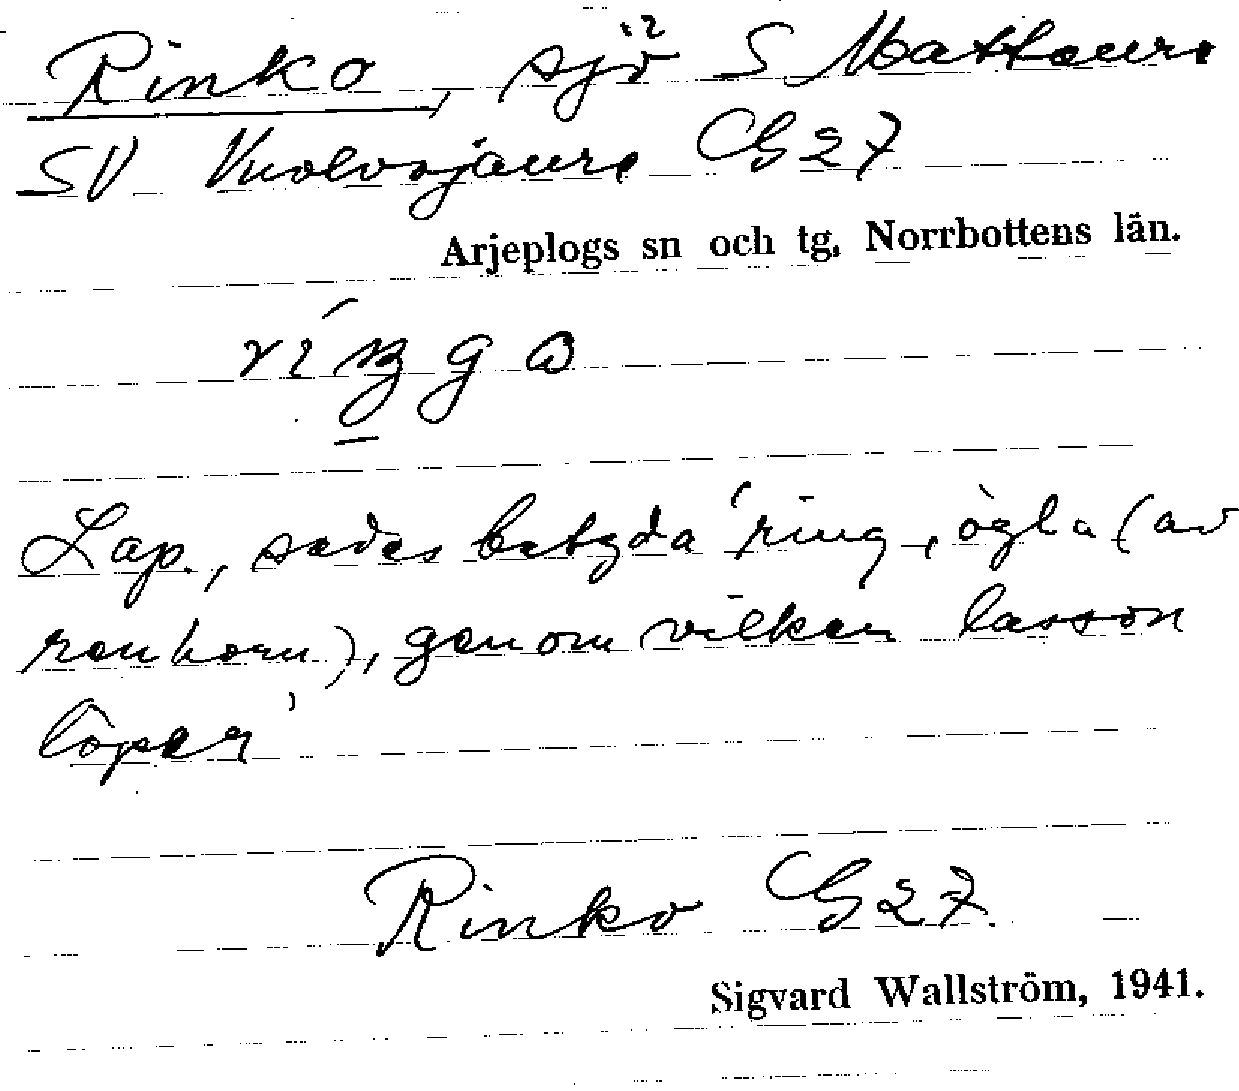 Rinko, sjö S Mattaure
SV Vuolvojaure G27
Arjeplogs sn och tg, Norrbottens län.
Lap., sades betyda 'ring, ögla (av
renhorn), genom vilken lasson
löper'
Rinko G27.
Sigvard Wallström, 1941.